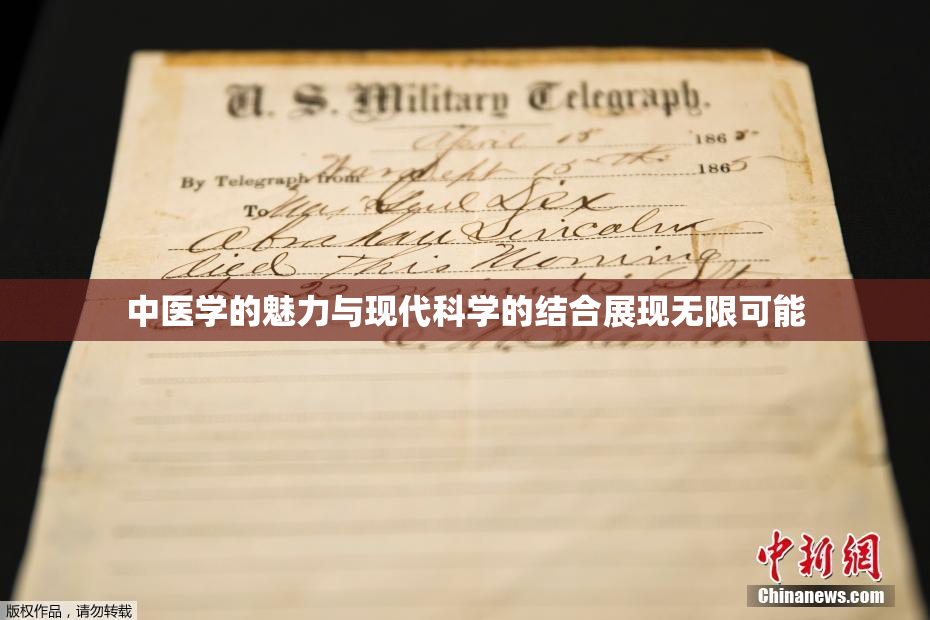 U. S. Military Telegraph.
April 15 1865
By Telegraph from War Dept 15th 1865
To Maj Genl Dix
Abraham Lincoln
died This Morning
at 22 minutes after
中医学的魅力与现代科学的结合展现无限可能
E. M. Stanton
中新网
Chinanews.com
版权作品，请勿转载